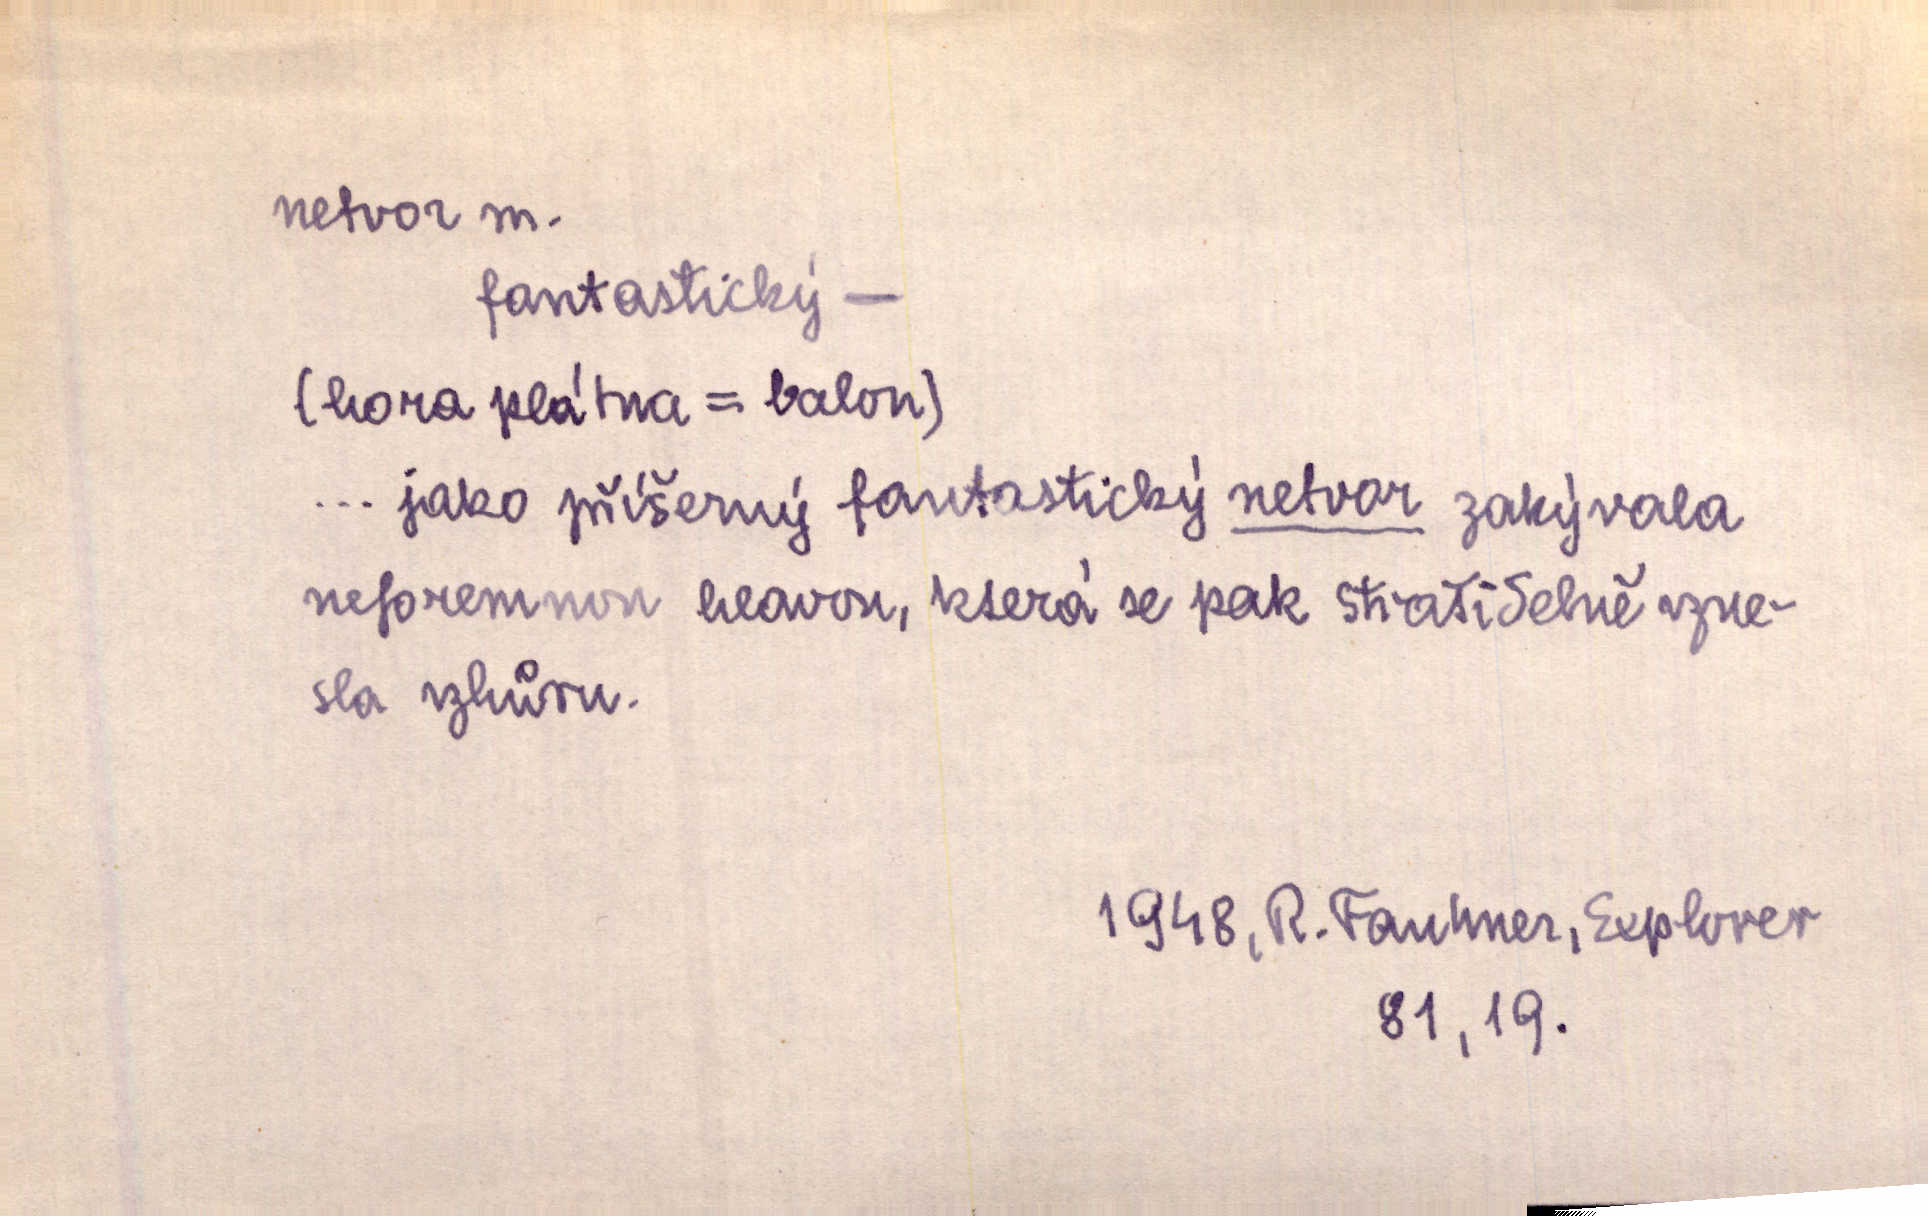 netvor m.
fantastický —
(hora plátna = balon)
... jako příšerný fantastický netvor zakývala
neforemnou hlavou, která se pak strašidelně vzne-
sla vzhůru.
1948, R. Faukner, Explorer
81, 19.